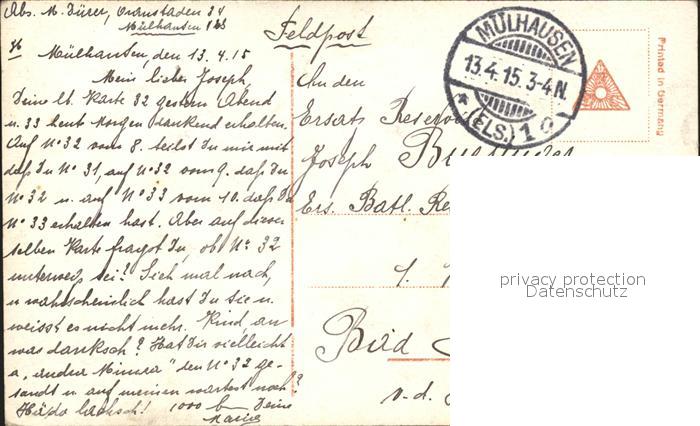 Abs. M. Dürer, Oranstaden 34
Mülhausen Els
Feldpost
Mülhausen, den 13.4.15
Mein lieber Joseph,
Deine lb. Karte 32 gestern Abend
u. 33 heut Morgen dankend erhalten.
Auf No 32 vom 8. teilst Du mir mit
daß Du No 31, auf No 32 vom 9. daß Du
No 32 u. auf No 33 vom 10. daß Du
No 33 erhalten hast. Aber auf dieser
selben Karte fragst Du, ob No. 32
unterwegs sei? Sieh mal nach,
u wahrscheinlich hast Du sie u.
weisst es nicht mehr. Kind, an
was denksch? Hat Dir vielleicht
a, andre " den No 32 ge-
sandt u. auf meinen wartest noch?
lachsch! 1000 Deine
Maria
An den
Ersatz Reserv
Joseph
Ers. Batl. Re
Bad
v. d.
MÜLHAUSEN
13.4.15.3-4N.
* (ELS.) 1
Printed in Germany
privacy protection
Datenschutz